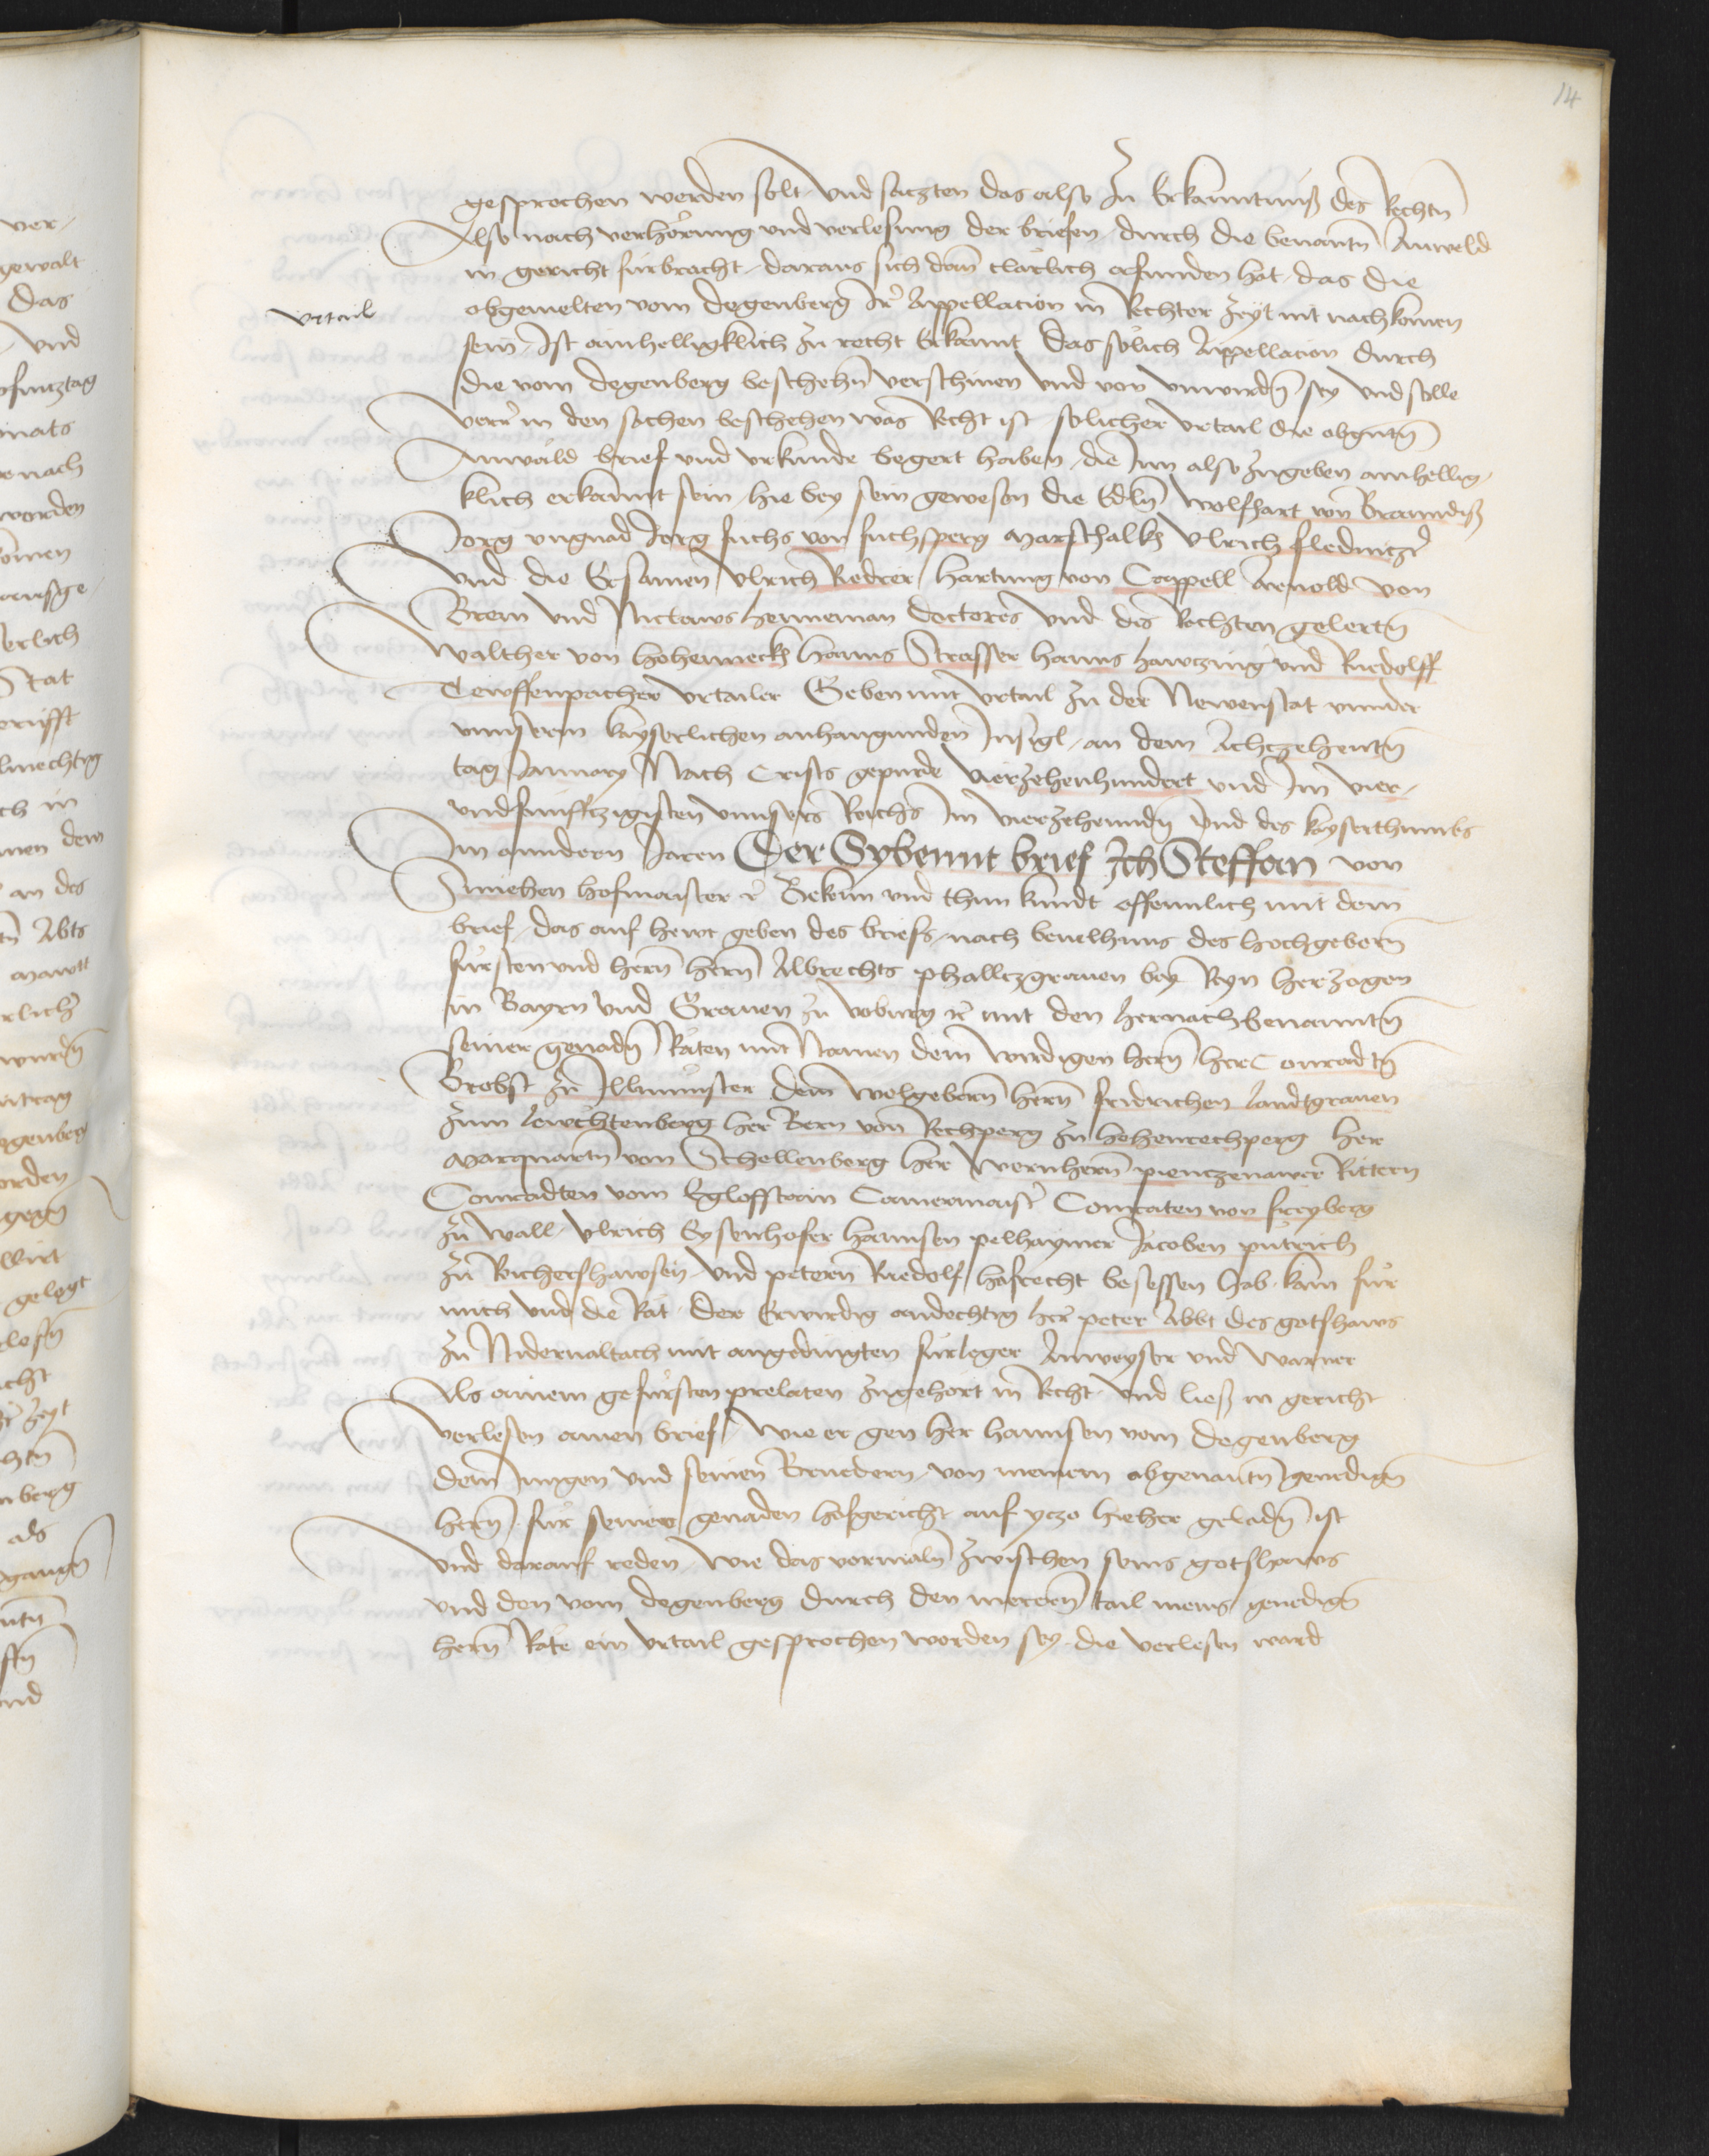 14
gesprochen werden solt Vnd saczten das also Zu Erkanntnuß des Rechtn̄
Also nach verhörung vnd verlesung der briefen durch die benantn̄ Anweld
in gericht fürbracht, daraus sich dan̄ clärlich erfunden hat, das die
vrtail
obgemelten vom degenberg Ir̄ Appellacion in Rechter Zeyt nit nachkomen
sein, Ist ainhelligklich Zu recht Erkannt das sölich Appellacion durch
die vom degenberg beschehn̄ verschinen vnd von vnwirdn̄ sey vnd solle
verr̄ in den sachen beschehen was Recht ist, solicher vrtail die obgntn̄
Anwäld brief vnd vrkunde begert haben, die Inn also zugeben ainhellig-
klich erkannt sein, hie bey sein gewesen die Edln̄ Wolfhart von Branndiß
Jorg vngnad Jorg fuchs von fuchsperg marschalk Vlrich fledniczer̄
Vnd die Ersamen Vlrich Riedrer Hartung von Cappell Arnold von
Brem vnd Niclaws herneman doctores vnd des Rechten gelertn̄
Walther von hohenneckh Hanns Strasser hanns hawczing vnd Ruedolff
Tewffenpacher vrtailer Geben mit vrtail Zu der Newenstat vnnder
vnnserm kayserlichen anhangunden Insigl, an dem Achczehentn̄
tag January Nach Crists gepurde vierzehenhundert vnd Im vier-
vndfunffczigisten vnnsers Reichs Im vierzehenndn̄ vnd des kayserthumbs
Im anndern Jaren Der Sybennt brief Ich Steffan von
Smiehen hofmaister ꝛc̄ Bekenn vnd thun kundt offennlich mit dem
brief, das auf hewt geben des briefs, nach beuelhnus des hochgeborn̄
fürsten vnd hern̄ hern̄ Albrechts phallczgrauen bey Reyn herzogen
in Bayrn vnd Grauen zu voburg ꝛc̄ mit den hernachbenanntn̄
seiner genadn̄ Räten mit Namen dem wirdigen hern̄ her Conradtn̄
Brobst zu Illmünster dem wolgeborn̄ hern̄ fridrichen landtgrauen
Zum lewchtenberg her Bern von Rechperg zu hohenrechperg her
marquartn̄ von Schellenberg her Wernhern̄ pienczenawer Rittern
Conradten vom Egloffstain Camermaistr̄ Conraten von freyberg
zu wall, Vlrich Eysenhofer hannsen pelhaymer Jacoben pütrich
zu Richershawsen, vnd petern̄ Ruedolf hofrecht besessen hab, kam für
mich vnd die Rät, der Erwirdig andechtig her̄ peter Abbt des gotshaws
zu Nidernaltach mit angedingten fürleger Anweyser vnd warner
Als ainem gefürsten prelaten Zugehort in Recht, vnd ließ in gericht
verlesen ainen brief, Wie er gen her hannsen vom degenberg
dem Jungen vnd seinen Bruedern, von meinem obgenantn̄ genedign̄
hern̄, für seiner genaden hofgericht auf yczo hieher geladn̄ ist
Vnd darauf reden, Wie das vormaln̄ zwischen seins gotshaws
vnd den vom degenberg durch den merern̄ tail meins genedign̄
hern̄ Räte ein vrtail gesprochen worden sey, die verlesen ward